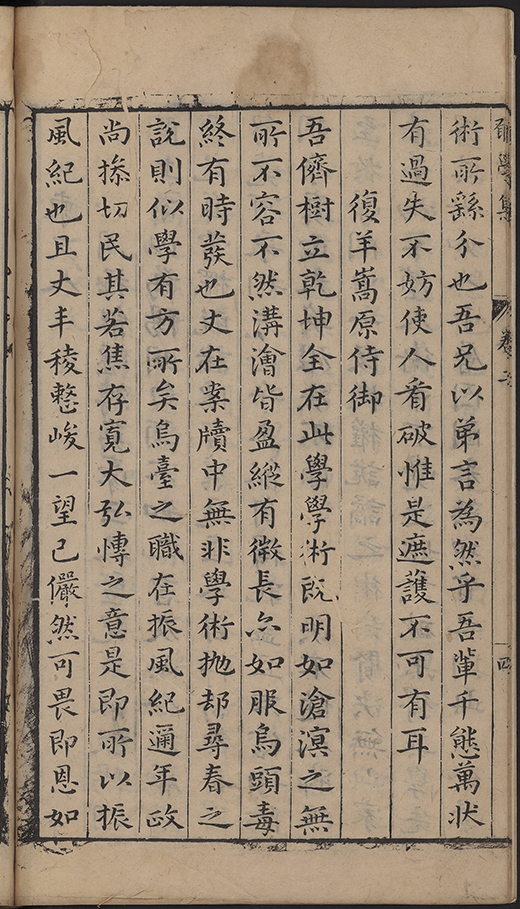 學集 卷 四
術所繇分也吾兄以弟言為然乎吾輩千態萬状
有過失不妨使人看破惟是遮護不可有耳
復羊嵩原侍御
吾儕樹立乾坤全在此學學術既明如滄溟之無
所不容不然溝澮皆盈縱有微長亦如服烏頭毒
終有時發也丈在案牘中無非學術抛却尋春之
說則似學有方所矣烏臺之職在振風紀邇年政
尚操切民其若焦存寬大弘慱之意是即所以振
風紀也且丈丰稜整峻一望已儼然可畏即恩如